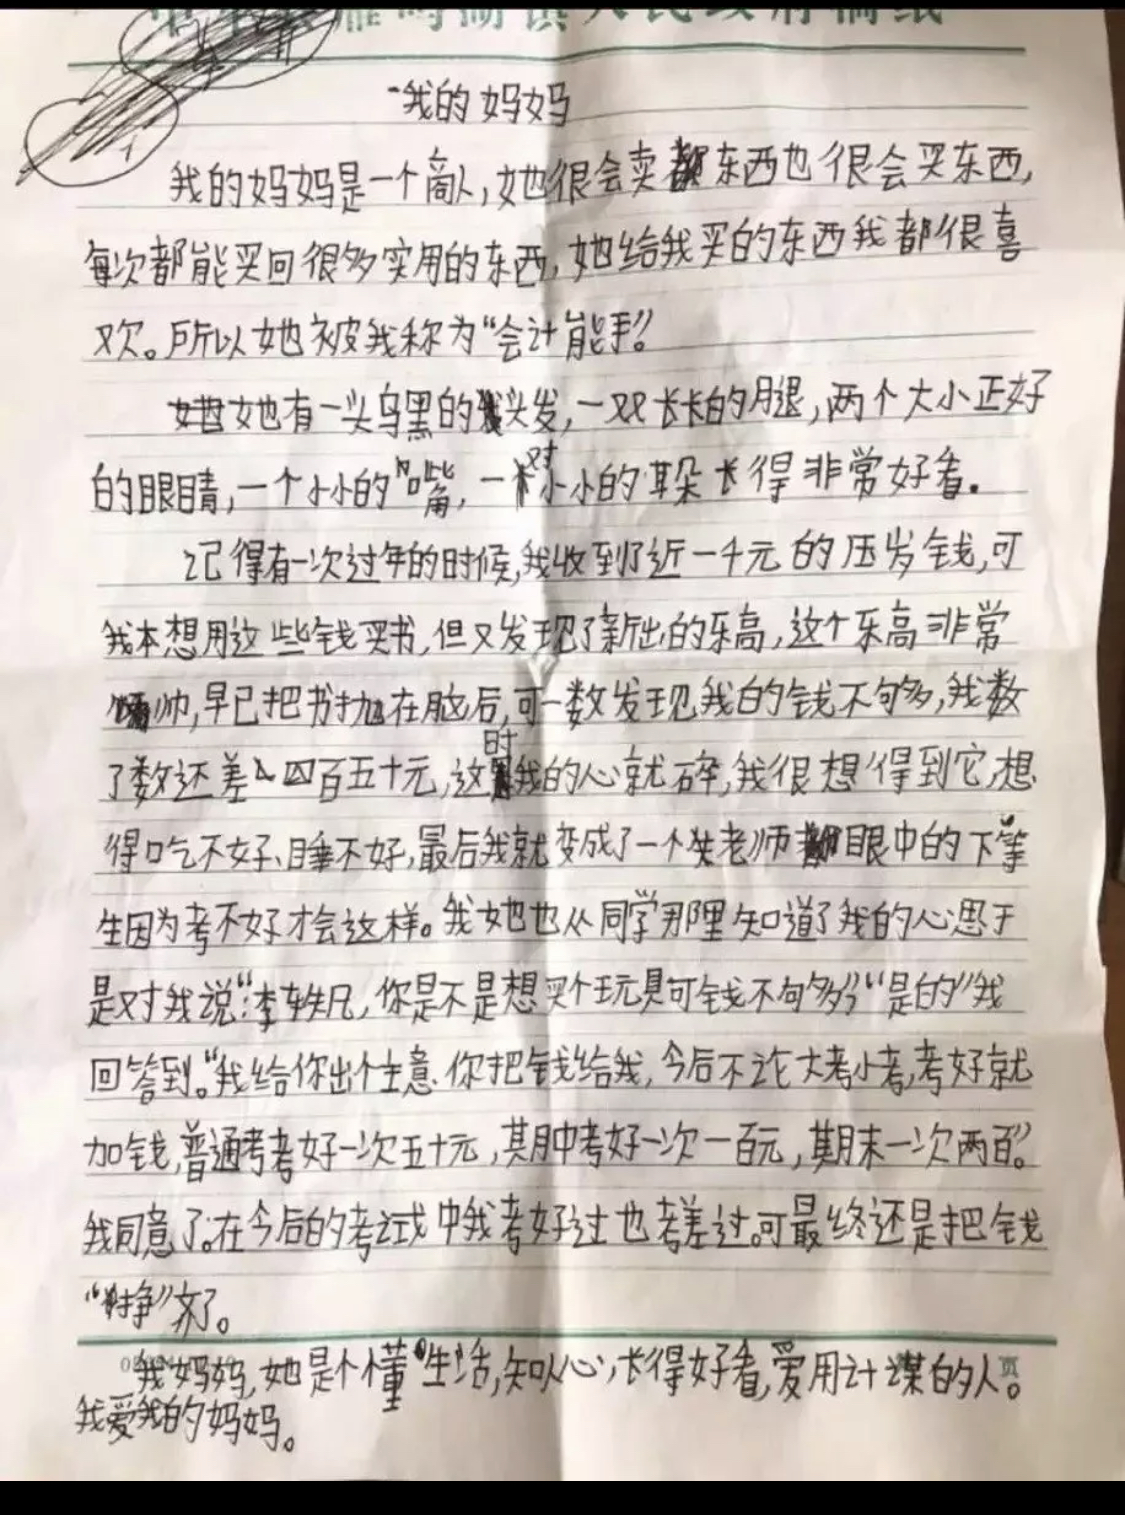 我的妈妈
我的妈妈是一个商人,她很会卖东西也很会买东西,
每次都能买回很多实用的东西,她给我买的东西我都很喜
欢。所以她被我称为“会计能手”。
她也有一头乌黑的头发,一双长长的腿,两个大小正好
的眼睛,一个小小的嘴角,一对小小的耳朵长得非常好看.
记得有一次过年的时候,我收到了近一千元的压岁钱,可
我本想用这些钱买书,但又发现了新出的乐高,这个乐高非常
帅,早已把书抛在脑后,可一数发现我的钱不够多,我数
了数还差四百五十元,这时我的心就碎,我很想得到它,想
得吃不好、睡不好,最后我就变成了一个老师眼中的下等
生因为考不好才会这样。我她也从同学那里知道了我的心思于
是对我说:“李轶凡,你是不是想买个玩具可钱不够多”“是的”我
回答到。“我给你出个主意.你把钱给我,今后不论大考小考,考好就
加钱,普通考考好一次五十元,其中考好一次一百元,期末一次两百”。
我同意了.在今后的考试中我考好过也考差过.可最终还是把钱
“挣”齐了。
我妈妈,她是个懂生活,知人心,长得好看,爱用计谋的人。
我爱我的妈妈。
页